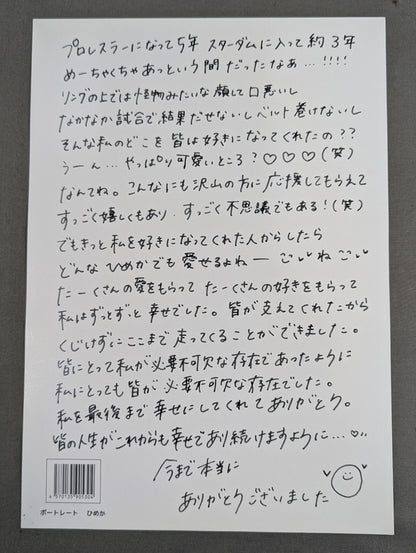 プロレスラーになって5年 スターダムに入って約3年
めーちゃくちゃあっという間だったなぁ…!!!!
リングの上では怪物みたいな顔して口悪いし
なかなか試合で結果だせないしベルト巻けないし
そんな私のどこを皆は好きになってくれたの??
うーん…やっぱり可愛いところ?♡♡♡(笑)
なんてね。こんなにも沢山の方に応援してもらえて
すっごく嬉しくもあり、すっごく不思議でもある!(笑)
でもきっと私を好きになってくれた人からしたら
どんなひめかでも愛せるよねー
たーくさんの愛をもらって たーくさんの好きをもらって
私はずっとずっと幸せでした。皆が支えてくれたから
くじけずにここまで走ってくることができました。
皆にとって私が必要不可欠な存在であったように
私にとっても皆が必要不可欠な存在でした。
私を最後まで幸せにしてくれてありがとう。
皆の人生がこれからも幸せであり続けますように…♡
今まで本当に
ありがとうございました
4570135905304
ポートレート ひめか